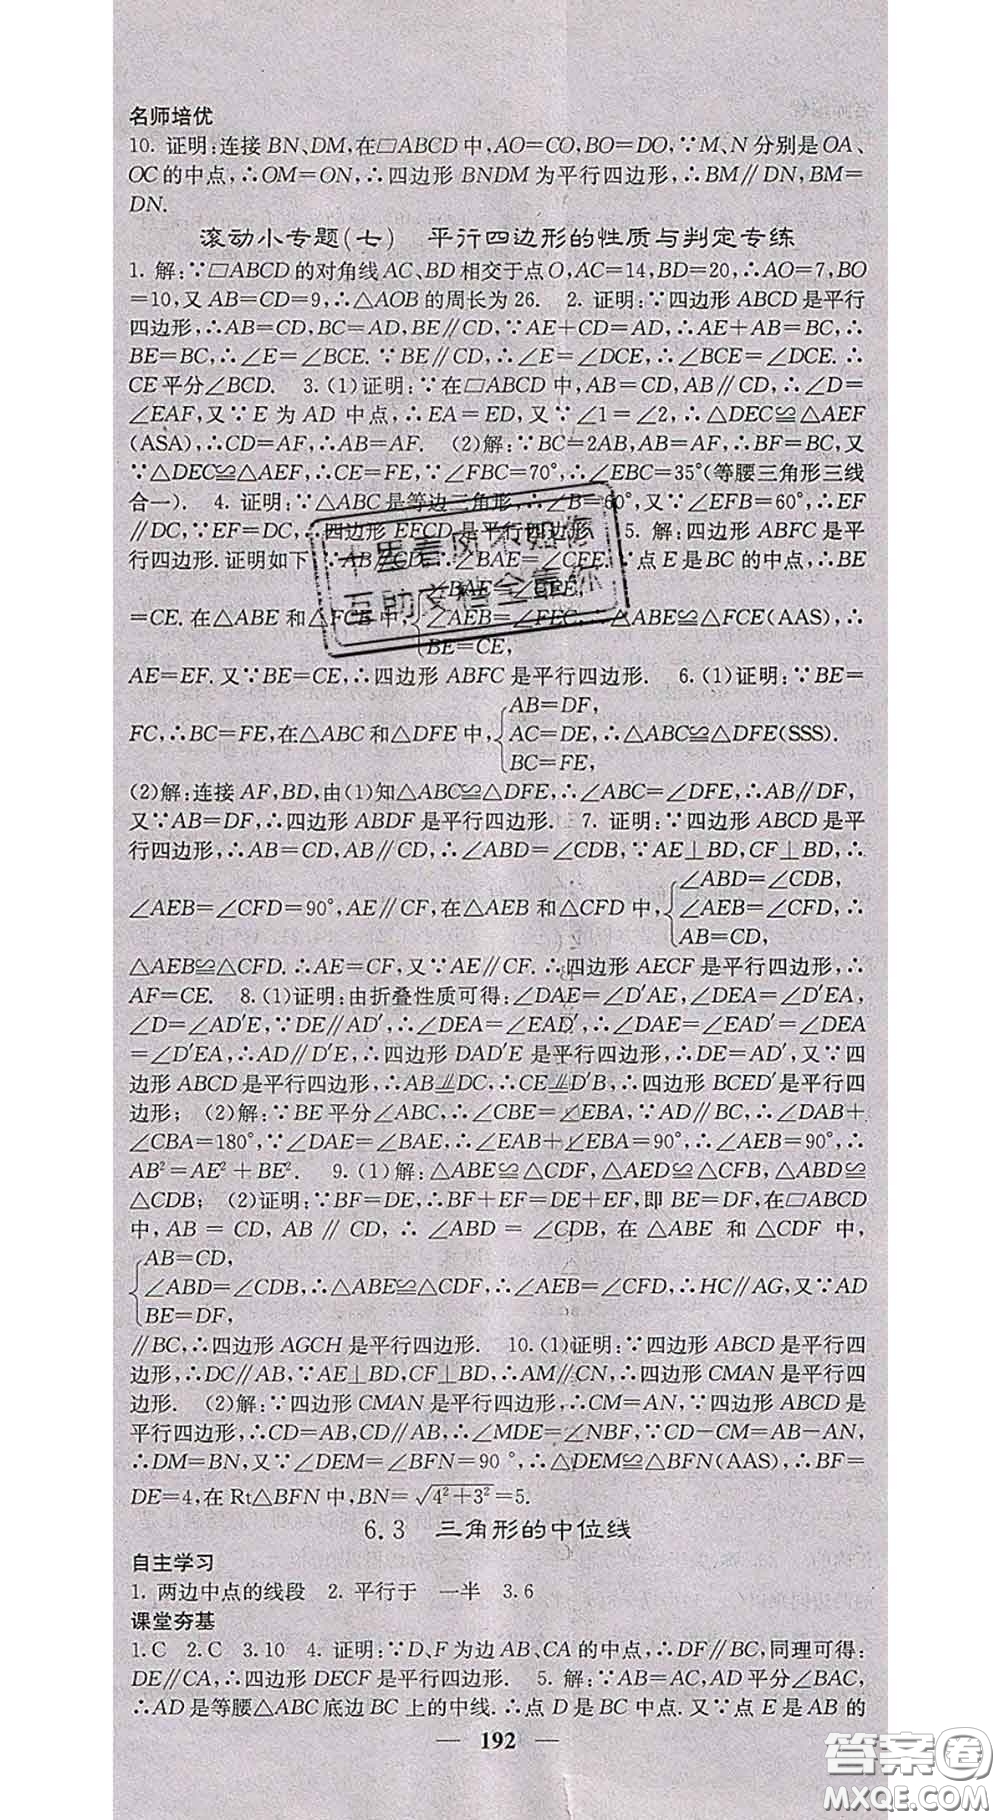 名师培优
10. 证明:连接 BN、DM,在▱ABCD 中,AO=CO,BO=DO,∵M、N 分别是 OA、
OC 的中点,∴OM=ON,∴四边形 BNDM 为平行四边形,∴BM∥DN,BM=
DN.
滚动小专题(七) 平行四边形的性质与判定专练
1. 解:∵▱ABCD 的对角线 AC、BD 相交于点 O,AC=14,BD=20,∴AO=7,BO
=10,又 AB=CD=9,∴△AOB 的周长为 26. 2. 证明:∵四边形 ABCD 是平行
四边形,∴AB=CD,BC=AD,BE∥CD,∵AE+CD=AD,∴AE+AB=BC,∴
BE=BC,∴∠E=∠BCE. ∵BE∥CD,∴∠E=∠DCE,∴∠BCE=∠DCE. ∴
CE 平分∠BCD. 3. (1)证明:∵在▱ABCD 中,AB=CD,AB∥CD,∴∠D=
∠EAF,又∵E 为 AD 中点,∴EA=ED,又∵∠1=∠2,∴△DEC≌△AEF
(ASA),∴CD=AF,∴AB=AF. (2)解:∵BC=2AB,AB=AF,∴BF=BC,又
∵△DEC≌△AEF,∴CE=FE,∵∠FBC=70°,∴∠EBC=35°(等腰三角形三线
合一). 4. 证明:∵△ABC 是等边三角形,∴∠B=60°,又∵∠EFB=60°,∴EF
∥DC,∵EF=DC,∴四边形 EFCD 是平行四边形. 5. 解:四边形 ABFC 是平
行四边形. 证明如下:∵AB∥CD,∴∠BAE=∠CFE. ∵点 E 是 BC 的中点,∴BE
∠BAE=∠CFE,
=CE. 在△ABE 和△FCE 中, ∠AEB=∠FEC, ∴△ABE≌△FCE(AAS),∴
BE=CE,
AE=EF. 又∵BE=CE,∴四边形 ABFC 是平行四边形. 6. (1)证明:∵BE=
AB=DF,
FC,∴BC=FE,在△ABC 和△DFE 中, AC=DE, ∴△ABC≌△DFE(SSS).
BC=FE,
(2)解:连接 AF,BD,由(1)知△ABC≌△DFE,∴∠ABC=∠DFE,∴AB∥DF,
又∵AB=DF,∴四边形 ABDF 是平行四边形. 7. 证明:∵四边形 ABCD 是平
行四边形,∴AB=CD,AB∥CD,∴∠ABD=∠CDB,∵AE⊥BD,CF⊥BD,∴
∠ABD=∠CDB,
∠AEB=∠CFD=90°,AE∥CF,在△AEB 和△CFD 中, ∠AEB=∠CFD, ∴
AB=CD,
△AEB≌△CFD. ∴AE=CF,又∵AE∥CF. ∴四边形 AECF 是平行四边形,∴
AF=CE. 8. (1)证明:由折叠性质可得:∠DAE=∠D′AE,∠DEA=∠D′EA,
∠D=∠AD′E,∵DE∥AD′,∴∠DEA=∠EAD′,∴∠DAE=∠EAD′=∠DEA
=∠D′EA,∴AD∥D′E,∴四边形 DAD′E 是平行四边形,∴DE=AD′,又∵四
边形 ABCD 是平行四边形,∴AB⊥∥DC,∴CE⊥∥D′B,∴四边形 BCED′是平行四
边形; (2)解:∵BE 平分∠ABC,∴∠CBE=∠EBA,∵AD∥BC,∴∠DAB+
∠CBA=180°,∵∠DAE=∠BAE,∴∠EAB+∠EBA=90°,∴∠AEB=90°,∴
AB²=AE²+BE². 9. (1)解:△ABE≌△CDF,△AED≌△CFB,△ABD≌
△CDB; (2)证明:∵BF=DE,∴BF+EF=DE+EF,即 BE=DF,在▱ABCD
中,AB=CD,AB∥CD,∴∠ABD=∠CDB,在△ABE 和△CDF 中,
AB=CD,
∠ABD=∠CDB, ∴△ABE≌△CDF,∴∠AEB=∠CFD,∴HC∥AG,又∵AD
BE=DF,
∥BC,∴四边形 AGCH 是平行四边形. 10. (1)证明:∵四边形 ABCD 是平行四
边形,∴DC∥AB,∵AE⊥BD,CF⊥BD,∴AM∥CN,∴四边形 CMAN 是平行四
边形. (2)解:∵四边形 CMAN 是平行四边形,∴CM=AN,∵四边形 ABCD 是
平行四边形,∴CD=AB,CD∥AB,∴∠MDE=∠NBF,∵CD-CM=AB-AN,
∴DM=BN,又∵∠DEM=∠BFN=90°,∴△DEM≌△BFN(AAS),∴BF=
DE=4,在 Rt△BFN 中,BN=√4²+3²=5.
6.3 三角形的中位线
自主学习
1. 两边中点的线段 2. 平行于 一半 3.6
课堂夯基
1.C 2.C 3.10 4. 证明:∵D、F 为边 AB、CA 的中点,∴DF∥BC,同理可得:
DE∥CA,∴四边形 DECF 是平行四边形. 5. 解:∵AB=AC,AD 平分∠BAC,
∴AD 是等腰△ABC 底边 BC 上的中线. ∴点 D 是 BC 中点. 又∵点 E 是 AB 的
— 192 —
十里春风不如你
互助文档全靠你
答案圈
MXQE.COM